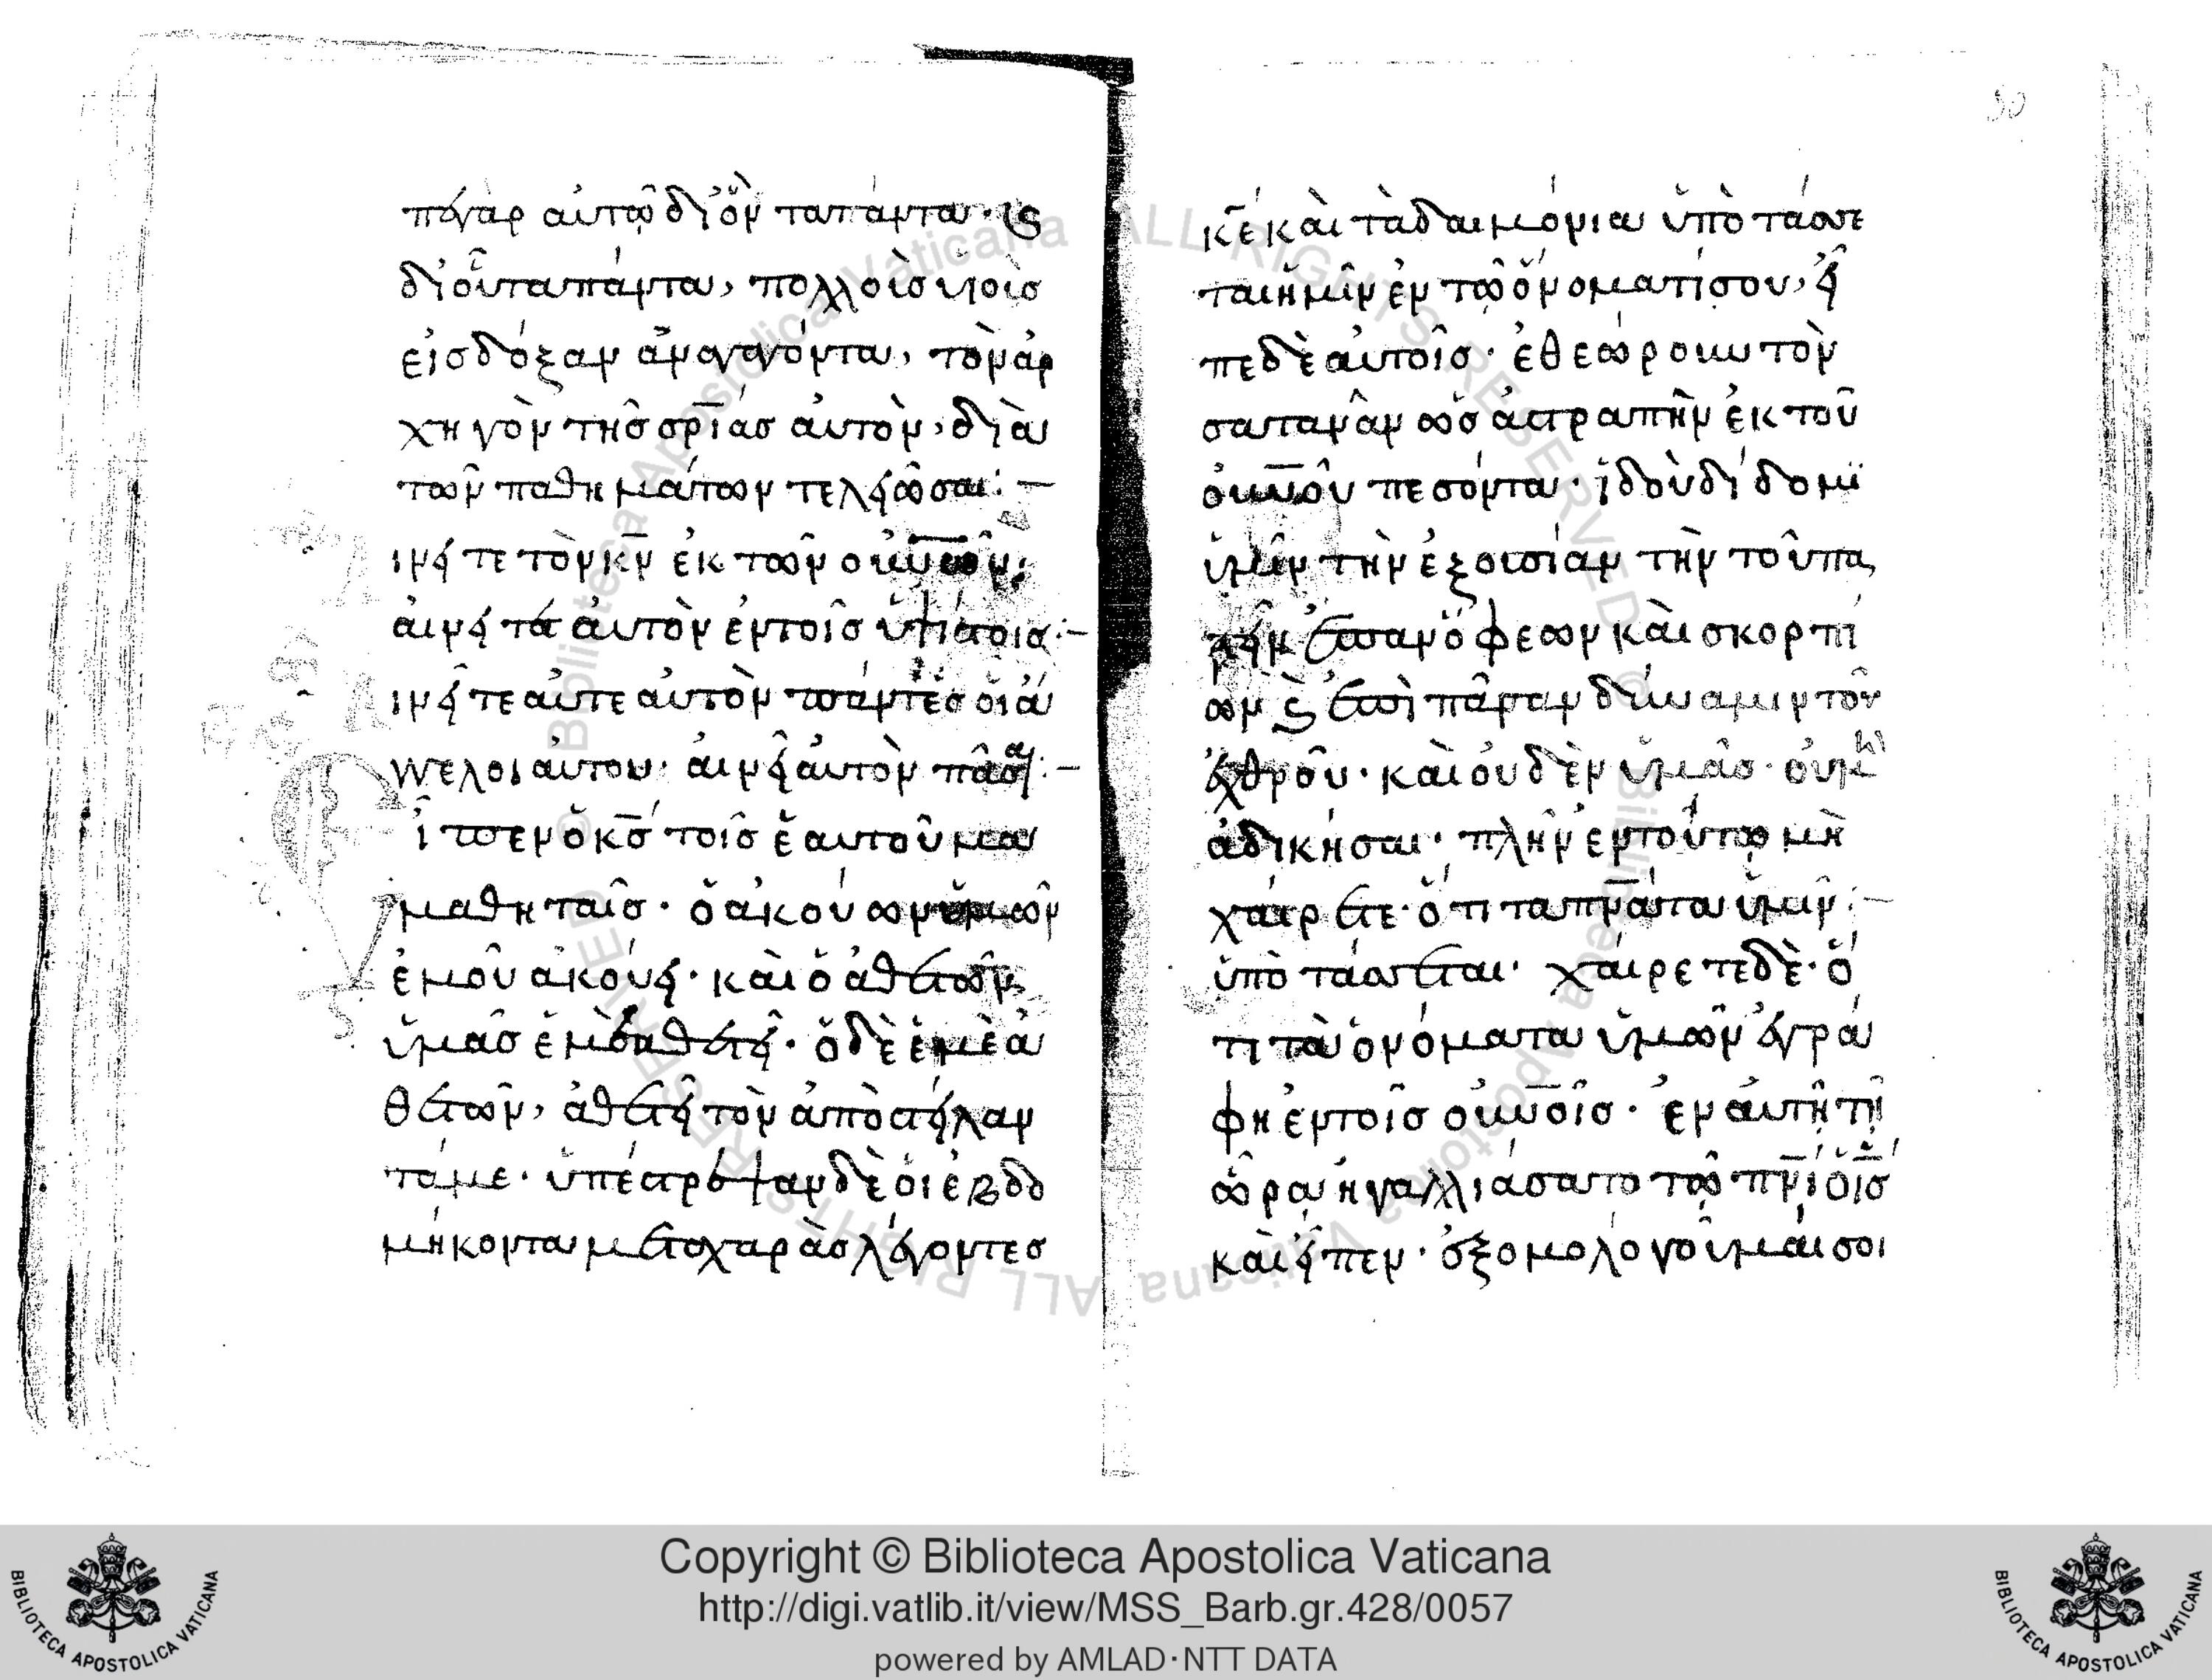 πάγὰρ αὐτῶ δι ὃν ταπάντα· καὶ
δι οὗ ταπάντα, πολλοὺς υἱοὺς
εἰσ δόξαν ἀναγαγόντα, τὸν ἀρ
χηγὸν τῆσ σρ̅ίασ ἀυτὸν, διὰ
τῶν παθημάτων τελειῶσαι:—
ινεῖτε τὸν κ̅ν ἐκ τῶν ου̅νων:
ἀινεῖτε ἀυτὸν ἐντοῖσ ὑψίστοισ:—
ινεῖτε αὐτε αυτὸν πάντεσ ὁι ἄ
γγελοι αυτου· αινεῖτε ἀυτὸν πᾶσαι:—
ῖπεν ὁ κ̅σ τοῖσ ἑαυτοῦ μα
μαθηταῖσ· ὁ ἀκούων ὑμῶν
ἐμοῦ ἀκούει· καὶ ὁ ἀθετῶν
ὑμᾶσ ἐμὲ ἀθετεῖ· ὁ δὲ ἐμὲ ἀ
θετῶν, ἀθετεῖ τὸν ἀποστείλαν
τά με· ὑπέστρεψαν δὲ ὁι ἑβδο
μήκοντα μετα χαρᾶσ λέγοντεσ
κ̅ε καὶ τὰ δαιμόνια ὑπὸ τάσσε
ται ἡμῖν ἐν τῶ ὀνοματί σου, εἶ
πε δὲ αυτοῖσ· ἐθεώρουν τὸν
σατανᾶν ὡσ ἀστραπὴν ἐκ τοῦ
ου̅νοῦ πεσόντα· ἰδοὺ δίδομι
ὑμῖν τὴν ἐξουσίαν τὴν τοῦ πα
τεῖν ἐπανω ὄφεων καὶ σκορπί
ων καὶ ἐπὶ πᾶσαν δύναμιν τοῦ
ἐχθροῦ· καὶ ουδὲν ὑμᾶσ· οὐ μὴ
ἀδικήσαι· πλὴν ἐν τούτω μὴ
χαίρετε· ὅτι τα πν̅ατα ὑμῖν:—
ὑπὸ τάσσεται· χαίρετε δὲ· ὅ
τι τὰ ὀνόματα ὑμῶν ἐγρά
φη ἐν τοῖσ ου̅νοῖσ· ἐν ἀυτῆ τῆ
ὥρα ἠγαλλιάσατο τῶ πν̅ι ὁ ι̅σ
καὶ εἶπεν· ἐξομολογοῦμαί σοι
Copyright © Biblioteca Apostolica Vaticana
http://digi.vatlib.it/view/MSS_Barb.gr.428/0057
powered by AMLAD·NTT DATA
BIBLIOTECA APOSTOLICA VATICANA
BIBLIOTECA APOSTOLICA VATICANA